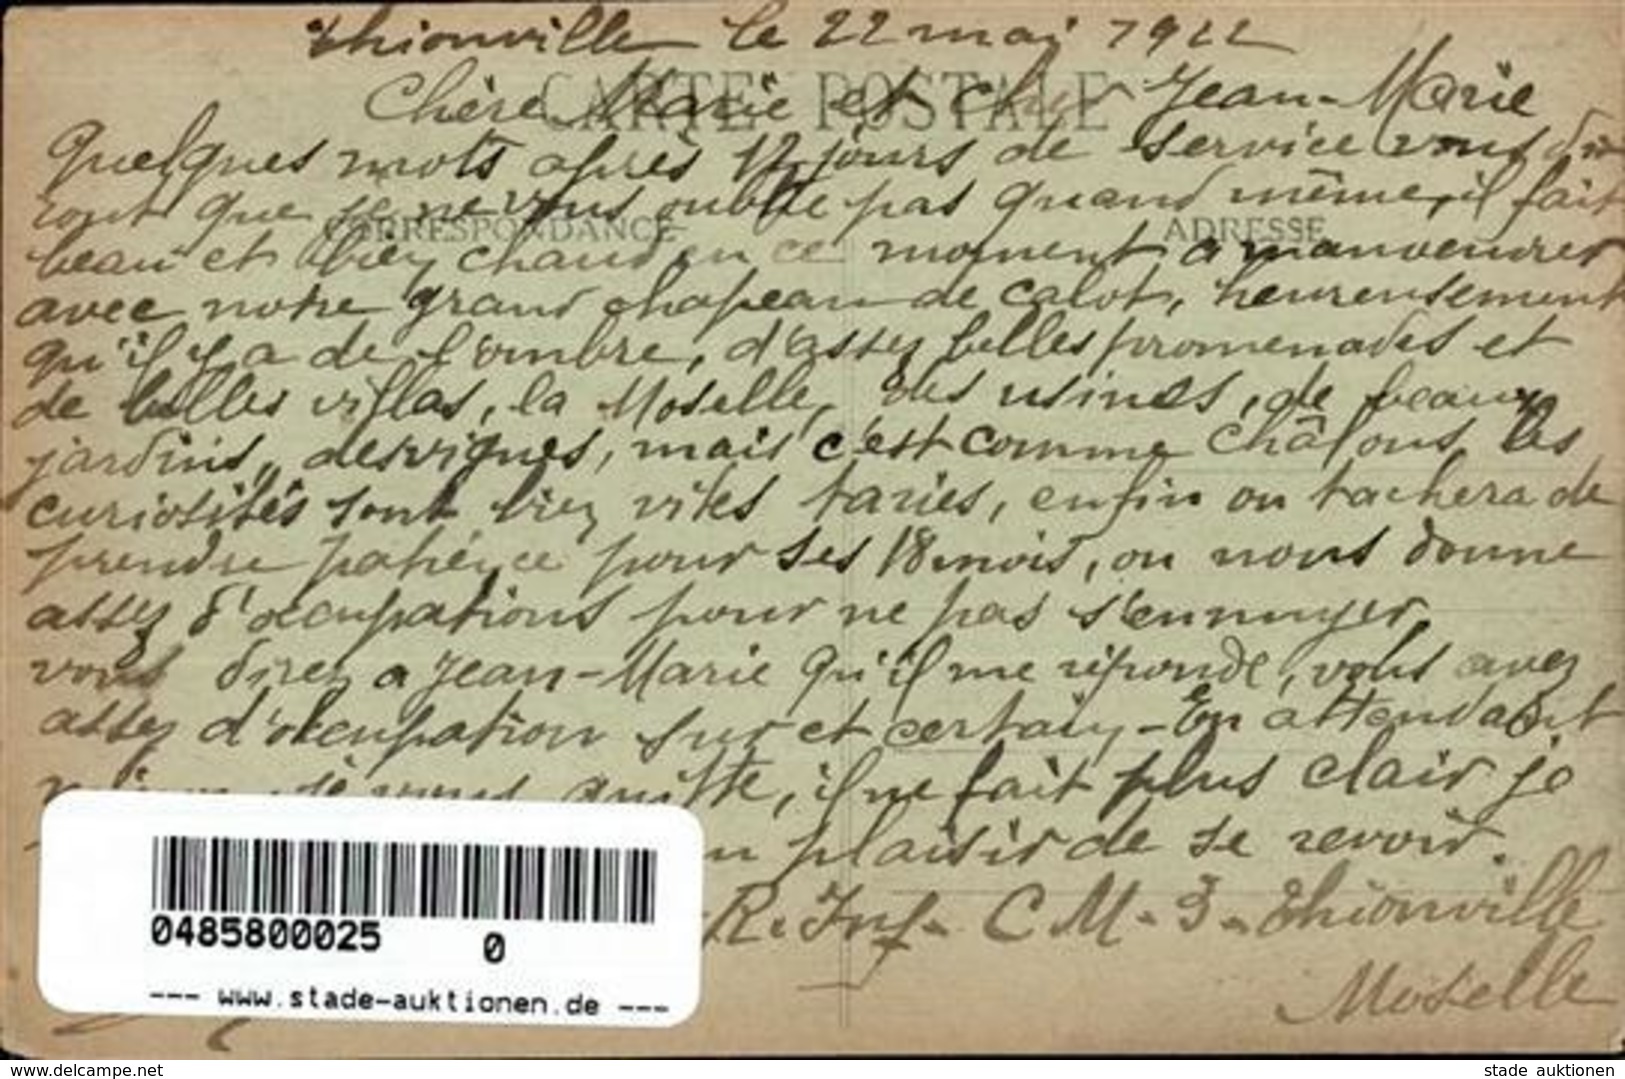 Thionville le 22 mai 1922
CARTE POSTALE
Chère Marie et cher Jean-Marie
Quelques mots après 12 jours de service vous di
ront que je ne vous oublie pas quand même, il fait
CORRESPONDANCE
ADRESSE
beau et bien chaud en ce moment a manoeuvrer
avec notre grand chapeau de calot, heureusement
qu'il y a de l'ombre, d'assez belles promenades et
de belles villas, la Moselle, des usines, de beaux
jardins, des vignes, mais c'est comme Châlons, les
curiosités sont bien vites taries, enfin on tachera de
prendre patience pour ses 18 mois, on nous donne
assez d'occupations pour ne pas s'ennuyer,
vous direz a Jean-Marie qu'il me réponde, vous avez
assez d'occupation sur et certain - En attendant
je vous quitte, il ne fait plus clair je
plaisir de se revoir.
R. Inf. C M. 3. Thionville
Moselle
0485800025 0
--- www.stade-auktionen.de ---
www.delcampe.net
stade auktionen